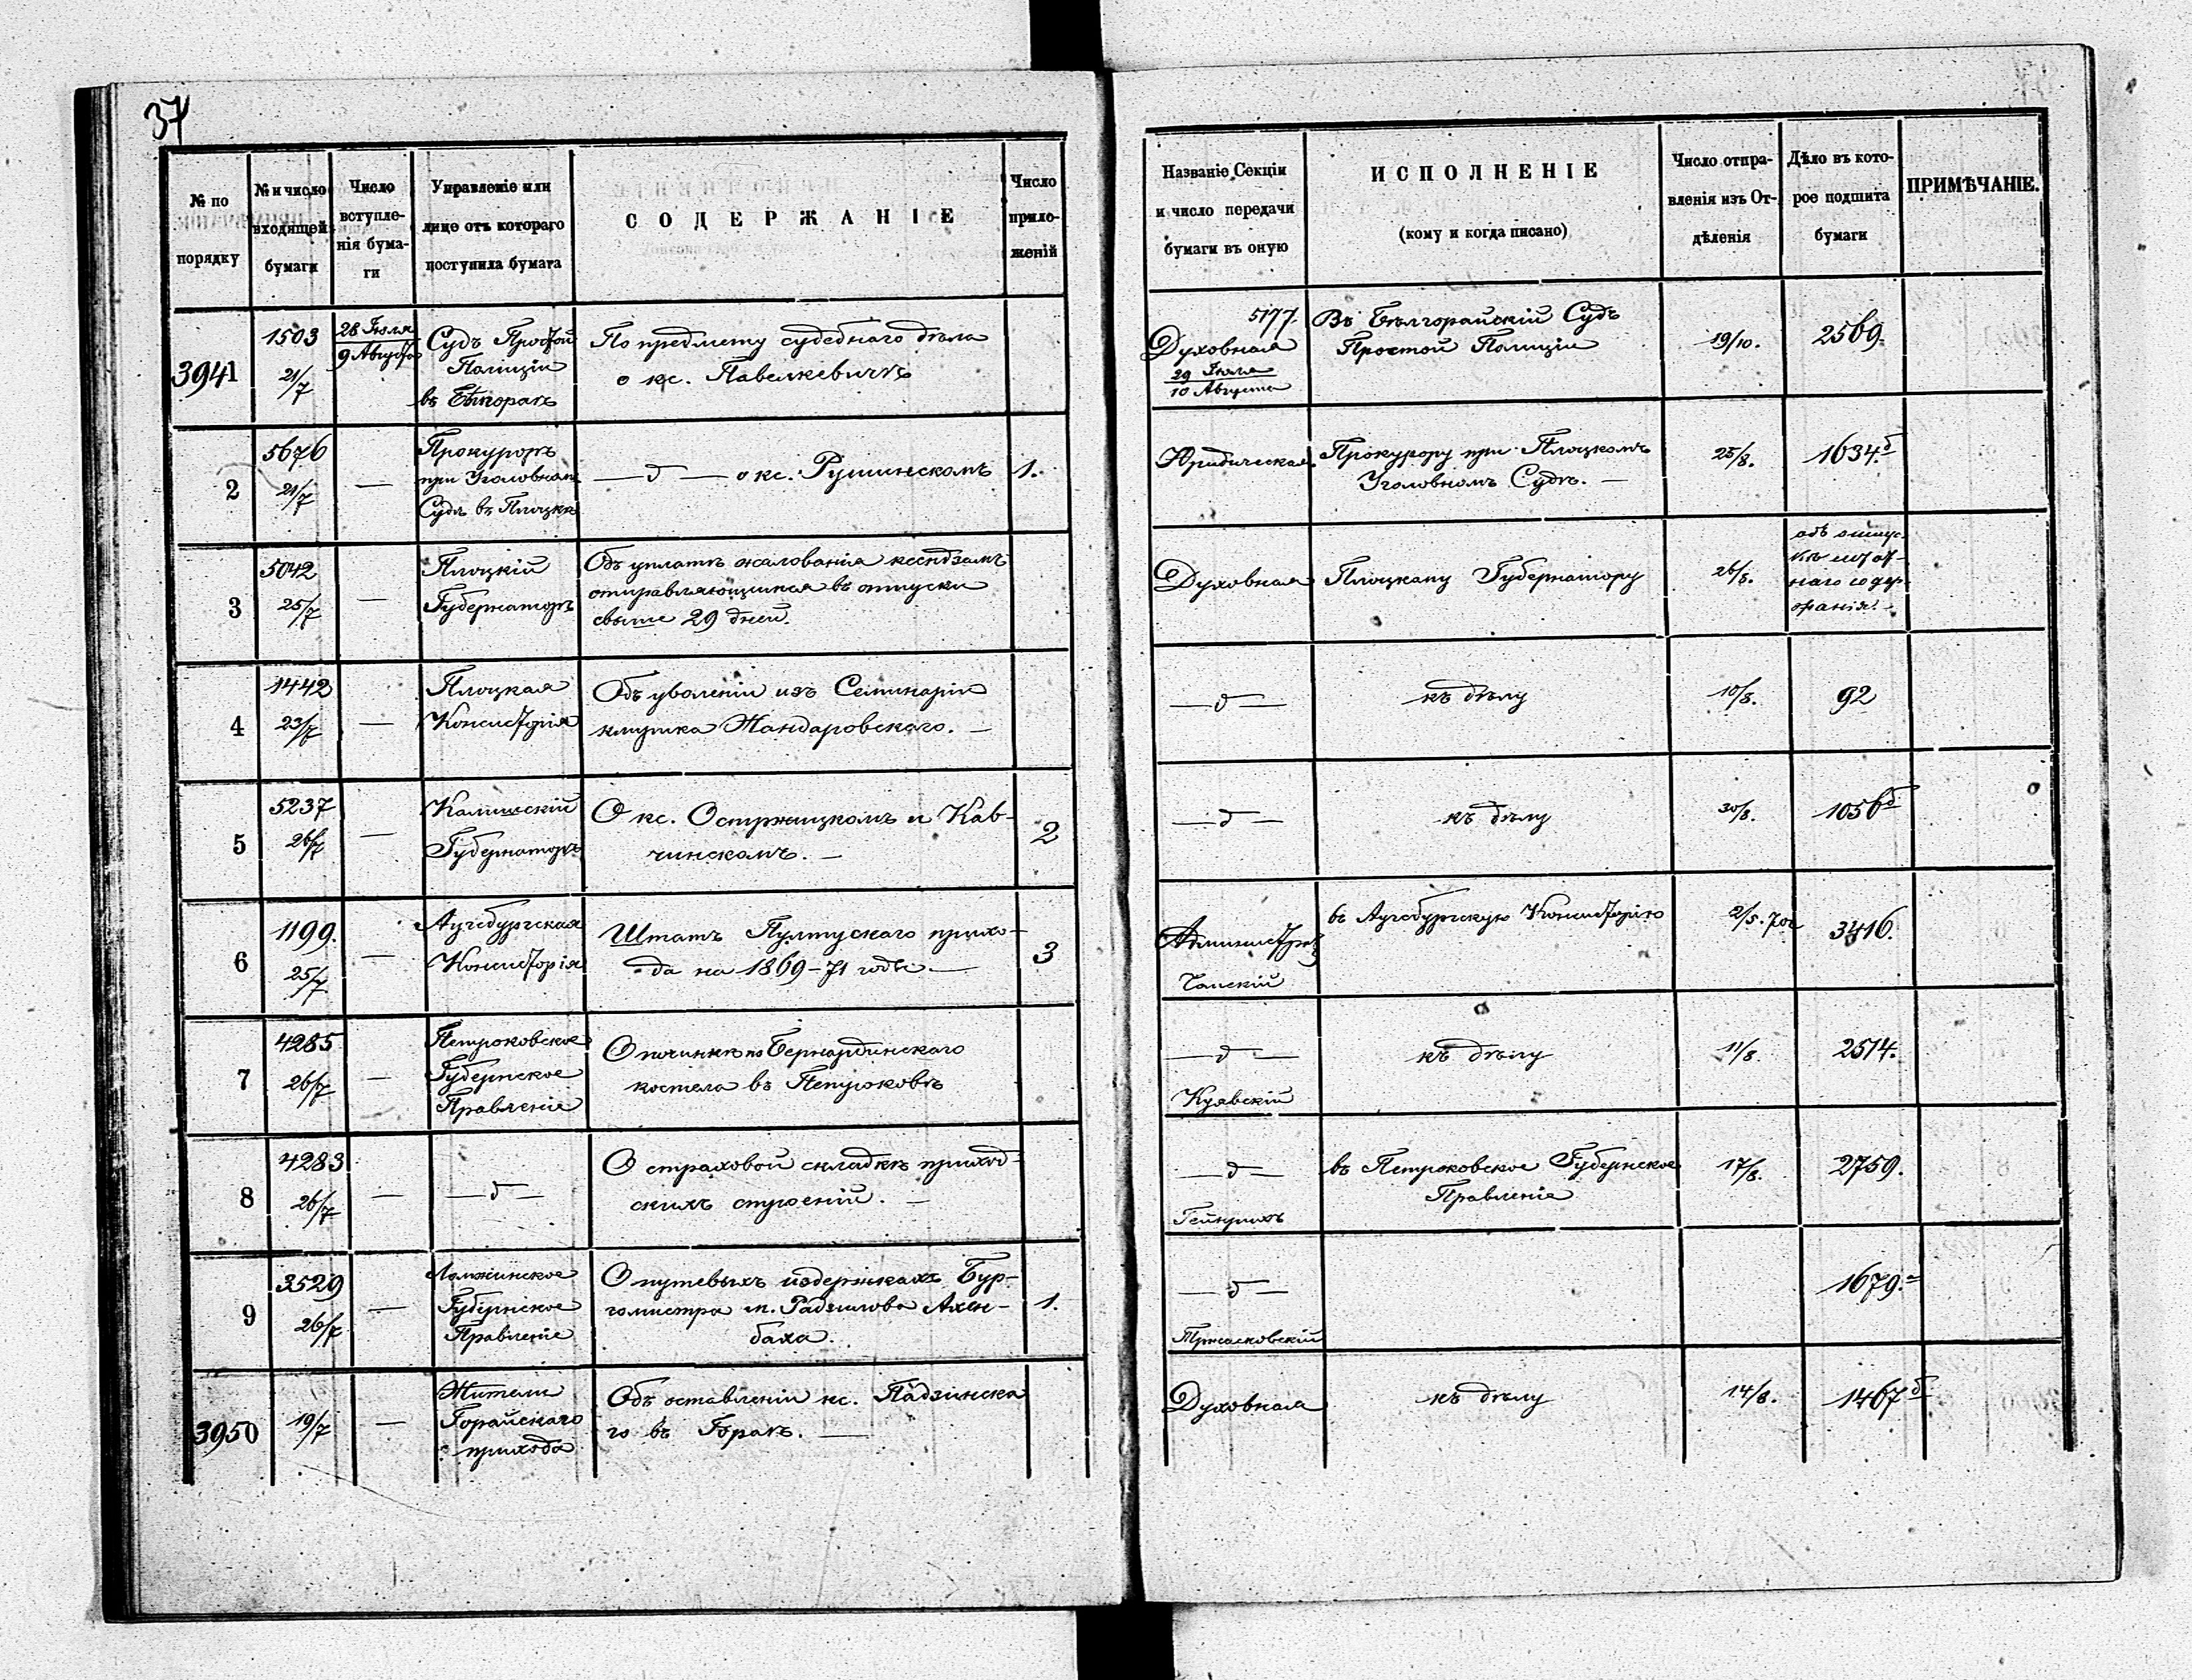 37
№ по
порядку
№ и число
входящей
бумаги
Число
вступле-
нія бума-
ги
Управленіе или
лице отъ котораго
поступила бумага
СОДЕРЖАНІЕ
Число
прило-
женій
Названіе Секціи
и число передачи
бумаги въ оную
ИСПОЛНЕНІЕ
(кому и когда писано)
Число отпра-
вленія изъ От-
дѣленія
Дѣло въ кото-
рое подшита
бумаги
ПРИМѢЧАНІЕ.
3941
1503
21/7
28 Іюля
9 Августа
Судъ Простой
Полиціи
въ
По предмету судебнаго дѣла
о кс. Павелкевичѣ
5177.
Духовная
29 Іюля
10 Августа
Въ Бѣлгорайскій Судъ
Простой Полиціи
19/10.
2569.
2
5676
21/7
—
Прокуроръ
при Уголовномъ
Судѣ въ Плоцкѣ
—д— о кс. Рушинскомъ
1.
Юридическая
Прокурору при Плоцкомъ
Уголовномъ Судѣ. —
25/8.
1634.б
3
5042
25/7
—
Плоцкій
Губернаторъ
Объ уплатѣ жалованія ксендзамъ
отправляющимся въ отпуски
свыше 29 дней.
Духовная
Плоцкому Губернатору
26/8.
объ
наго содер-
жанія. —
4
1442
23/7
—
Плоцкая
Консисторія
Объ уволеніи изъ Семинаріи
клирика Жандаровскаго. —
—д—
къ дѣлу
10/8.
92
5
5237
26/7
—
Калишскій
Губернаторъ
О кс. Остржицкомъ и Кав-
чинскомъ. —
2
—д—
къ дѣлу
30/8.
1056б
6
1199.
25/7
—
Аугсбургская
Консисторія
Штатъ Пултускаго прихо-
да на 1869-71 годы. —
3
Чамскій
въ Аугсбургскую Консисторію
2/5.
3416.
7
4285
26/7
—
Петроковское
Губернское
Правленіе
О починкѣ по Бернардинскаго
костела въ Петроковѣ
—д—
Куявскій
къ дѣлу
11/8
2514.
8
4283
26/7
—
—д—
О страховой складкѣ приход-
скихъ строеній. —
—д—
Гейнрихъ
въ Петроковское Губернское
Правленіе
17/8.
2759.
9
3529
26/7
—
Ломжинское
Губернское
Правленіе
О путевыхъ издержкахъ Бур-
гомистра м. Радзилова Ахен-
баха.
1.
—д—
Тржасковскій
1679.
3950
19/7
—
Жители
Горайскаго
прихода
Объ оставленіи кс. Падзинска
го въ Гораѣ. —
Духовная
къ дѣлу
14/8.
1467б